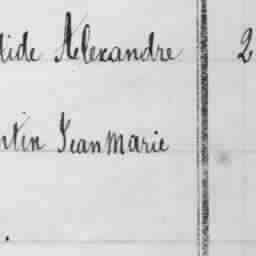 dide Alexandre 2
ntin Jean Marie